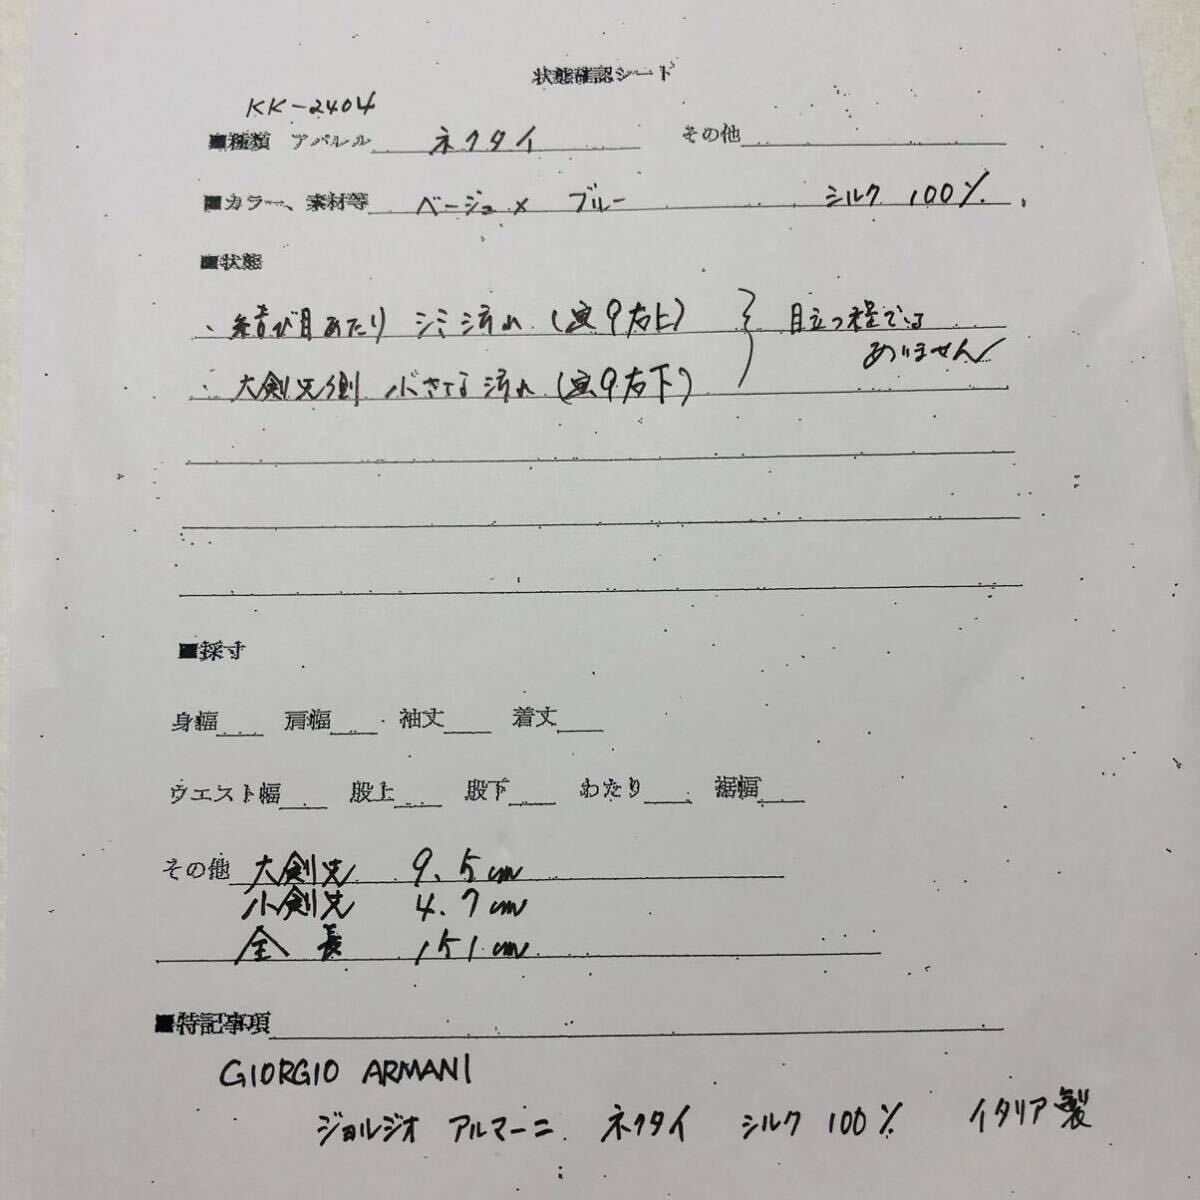 状態確認シート
KK-2404
■種類 アパレル ネクタイ その他
■カラー、素材等 ベージュ× ブルー シルク 100%
■状態
・結び目あたり シミ汚れ (画9右上) 目立つ程では
ありません
・大剣先側 小さな汚れ (画9右下)
■採寸
身幅 肩幅 袖丈 着丈
ウエスト幅 股上 股下 わたり 裾幅
その他 大剣先 9.5cm
小剣先 4.7cm
全長 151cm
■特記事項
GIORGIO ARMANI
ジョルジオ アルマーニ ネクタイ シルク 100% イタリア製